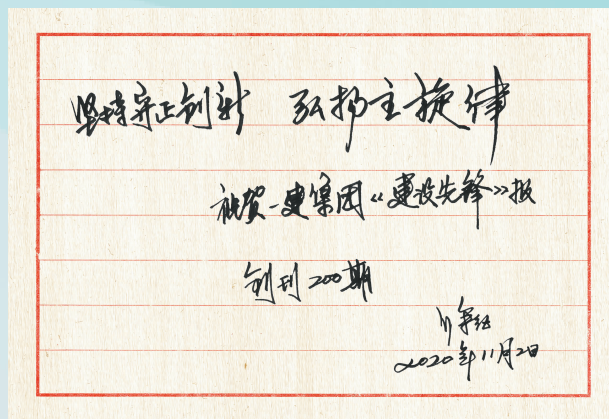 坚持守正创新 弘扬主旋律
祝贺一建集团《建设先锋》报
创刊200期
2020年11月2日